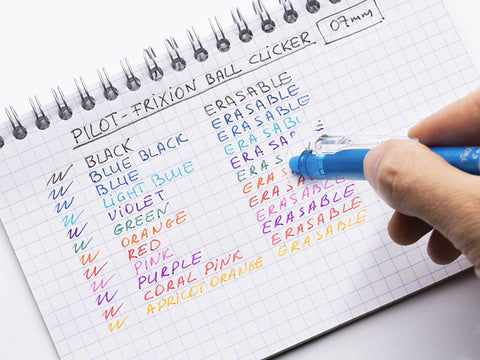 PILOT-FRIXION BALL CLICKER 07mm
BLACK ERASABLE
BLUE BLACK ERASABLE
BLUE ERASABLE
LIGHT BLUE ERASABL
VIOLET ERASABLE
GREEN ERAS
ORANGE ERAS
RED ERASABLE
PINK ERASABLE
PURPLE ERASABLE
CORAL PINK ERASABLE
APRICOT ORANGE ERASABLE